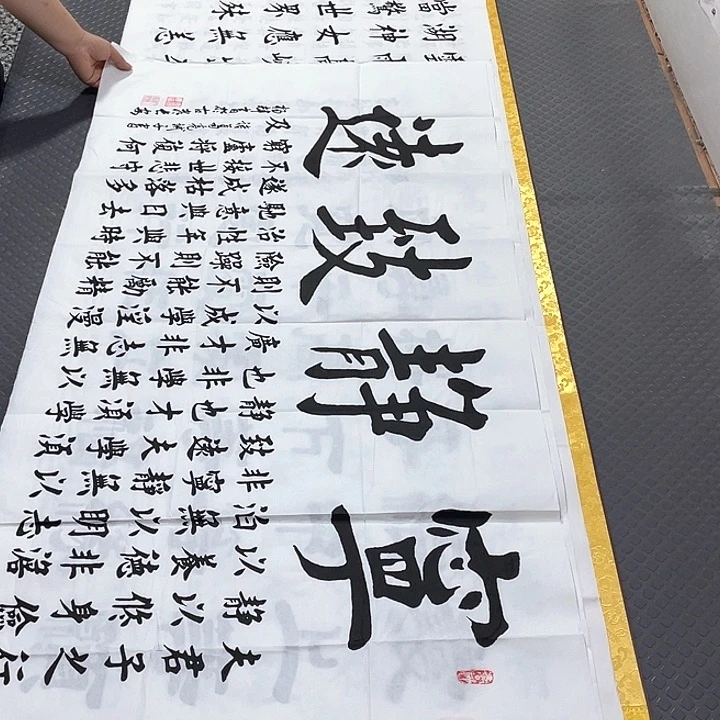 寧靜致遠
夫君子之行
靜以修身儉
以養德非澹
泊無以明志
非寧靜無以
致遠夫學須
靜也才須學
也非學無以
廣才非志無
以成學淫漫
則不能勵精
險躁則不能
治性年與時
馳意與日去
遂成枯落多
不接世悲守
窮廬將復何
及
湖神女應無恙
當驚世界殊